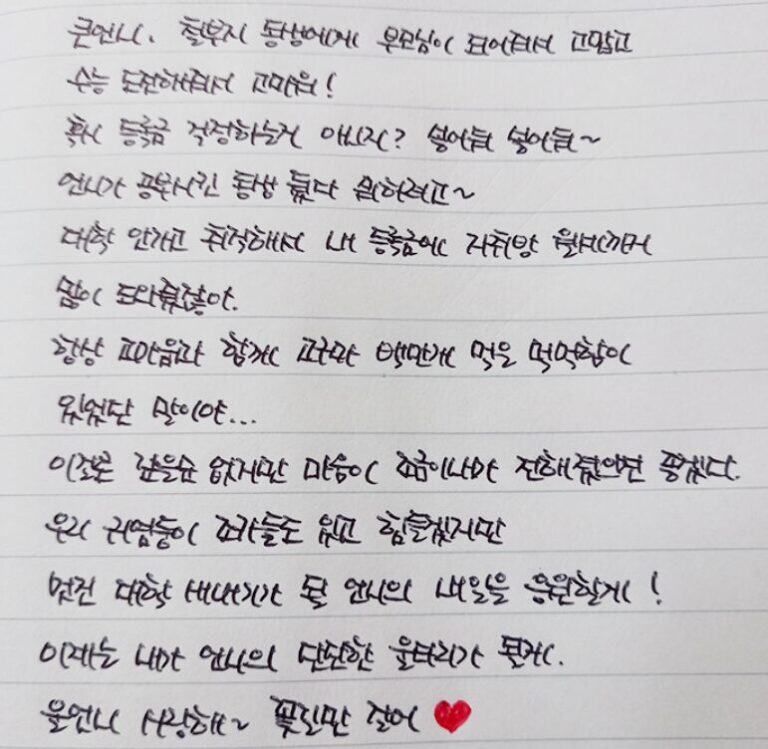 큰언니. 철부지 동생에게 부모님이 되어줘서 고맙고
수능 도전해줘서 고마워!
혹시 등록금 걱정하는거 아니지? 넣어둬 넣어둬~
언니가 공부시킨 동생 뒀다 뭐하려고~
대학 안가고 취직해서 내 등록금에 자취방 월세까지
많이 도와줬잖아.
항상 고마움과 함께 고구마 백만개 먹은 먹먹함이
있었단 말이야...
이걸론 갚을순 없지만 마음이 조금이나마 전해졌으면 좋겠다.
우리 귀염둥이 조카들도 있고 힘들겠지만
멋진 대학 새내기가 될 언니의 내일을 응원할게!
이제는 내가 언니의 단단한 울타리가 될게.
울언니 사랑해~ 꽃길만 걸어 ❤